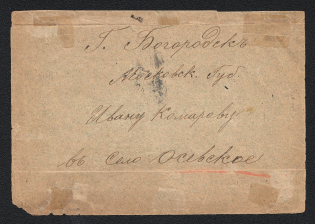 Г. Богородскъ
Московск. Губ.
Ивану Комареву
въ село Осевское